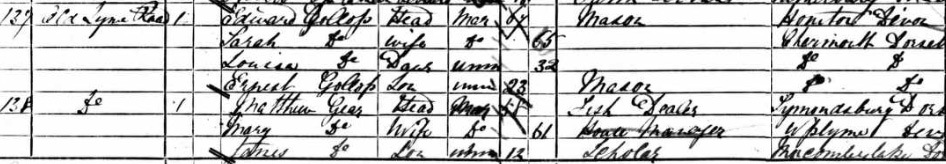 137 Old Lyme Road 1 Edward Gollop Head Mar 67 Mason Honiton Devon
Sarah Do Wife Do 65 Charmouth Dorset
Louisa Do Daur unm 32 Do Do
Ernest Gollop Son unm 23 Mason Do Do
138 Do 1 Matthew Head Mar Fish Dealer Symondsbury Dors
Mary Do Wife Do 61 House Manager Uplyme Dev
James Do Son unm 12 Scholar